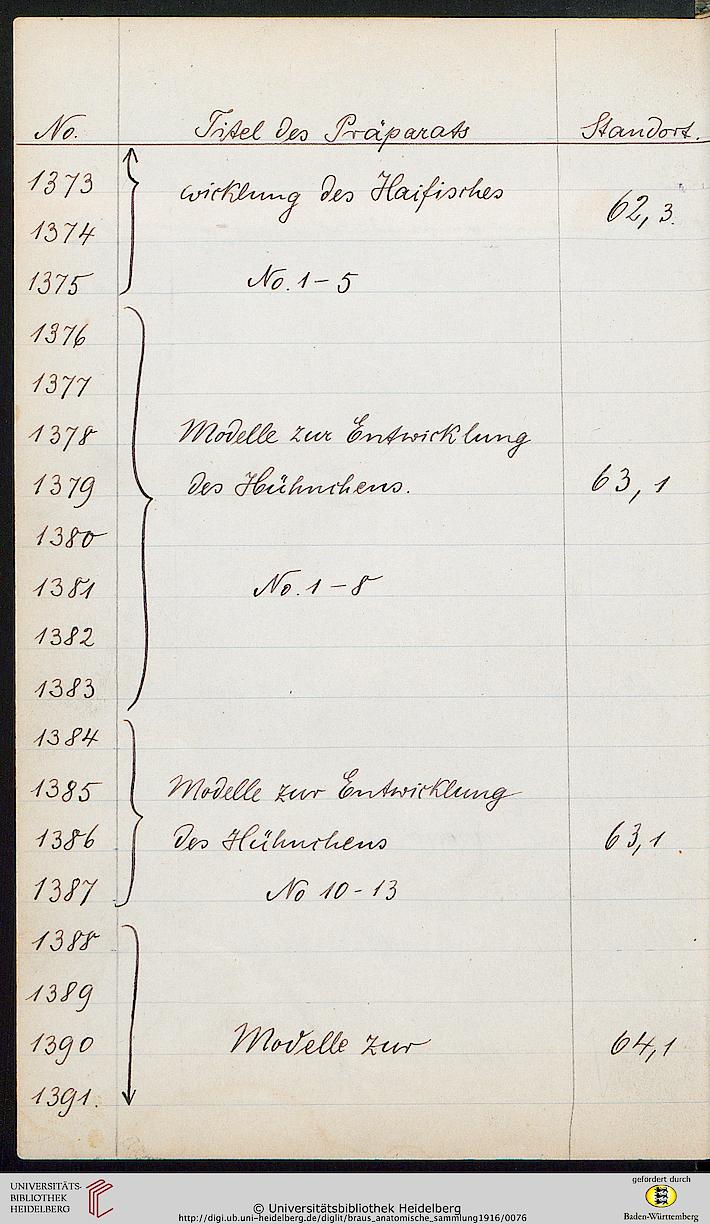 No. Titel des Präparats Standort.
1373 wicklung des Haifisches
62, 3.
1374
1375 No. 1 - 5
1376
1377
1378 Modelle zur Entwicklung
1379 des Hühnchens. 63, 1
1380
1381 No. 1 - 8
1382
1383
1384
1385 Modelle zur Entwicklung
1386 des Hühnchens 63, 1
1387 No 10 - 13
1388
1389
1390 Modelle zur 64, 1
1391.
UNIVERSITÄTS-
BIBLIOTHEK
HEIDELBERG
© Universitätsbibliothek Heidelberg
http://digi.ub.uni-heidelberg.de/diglit/braus_anatomische_sammlung1916/0076
gefördert durch
Baden-Württemberg